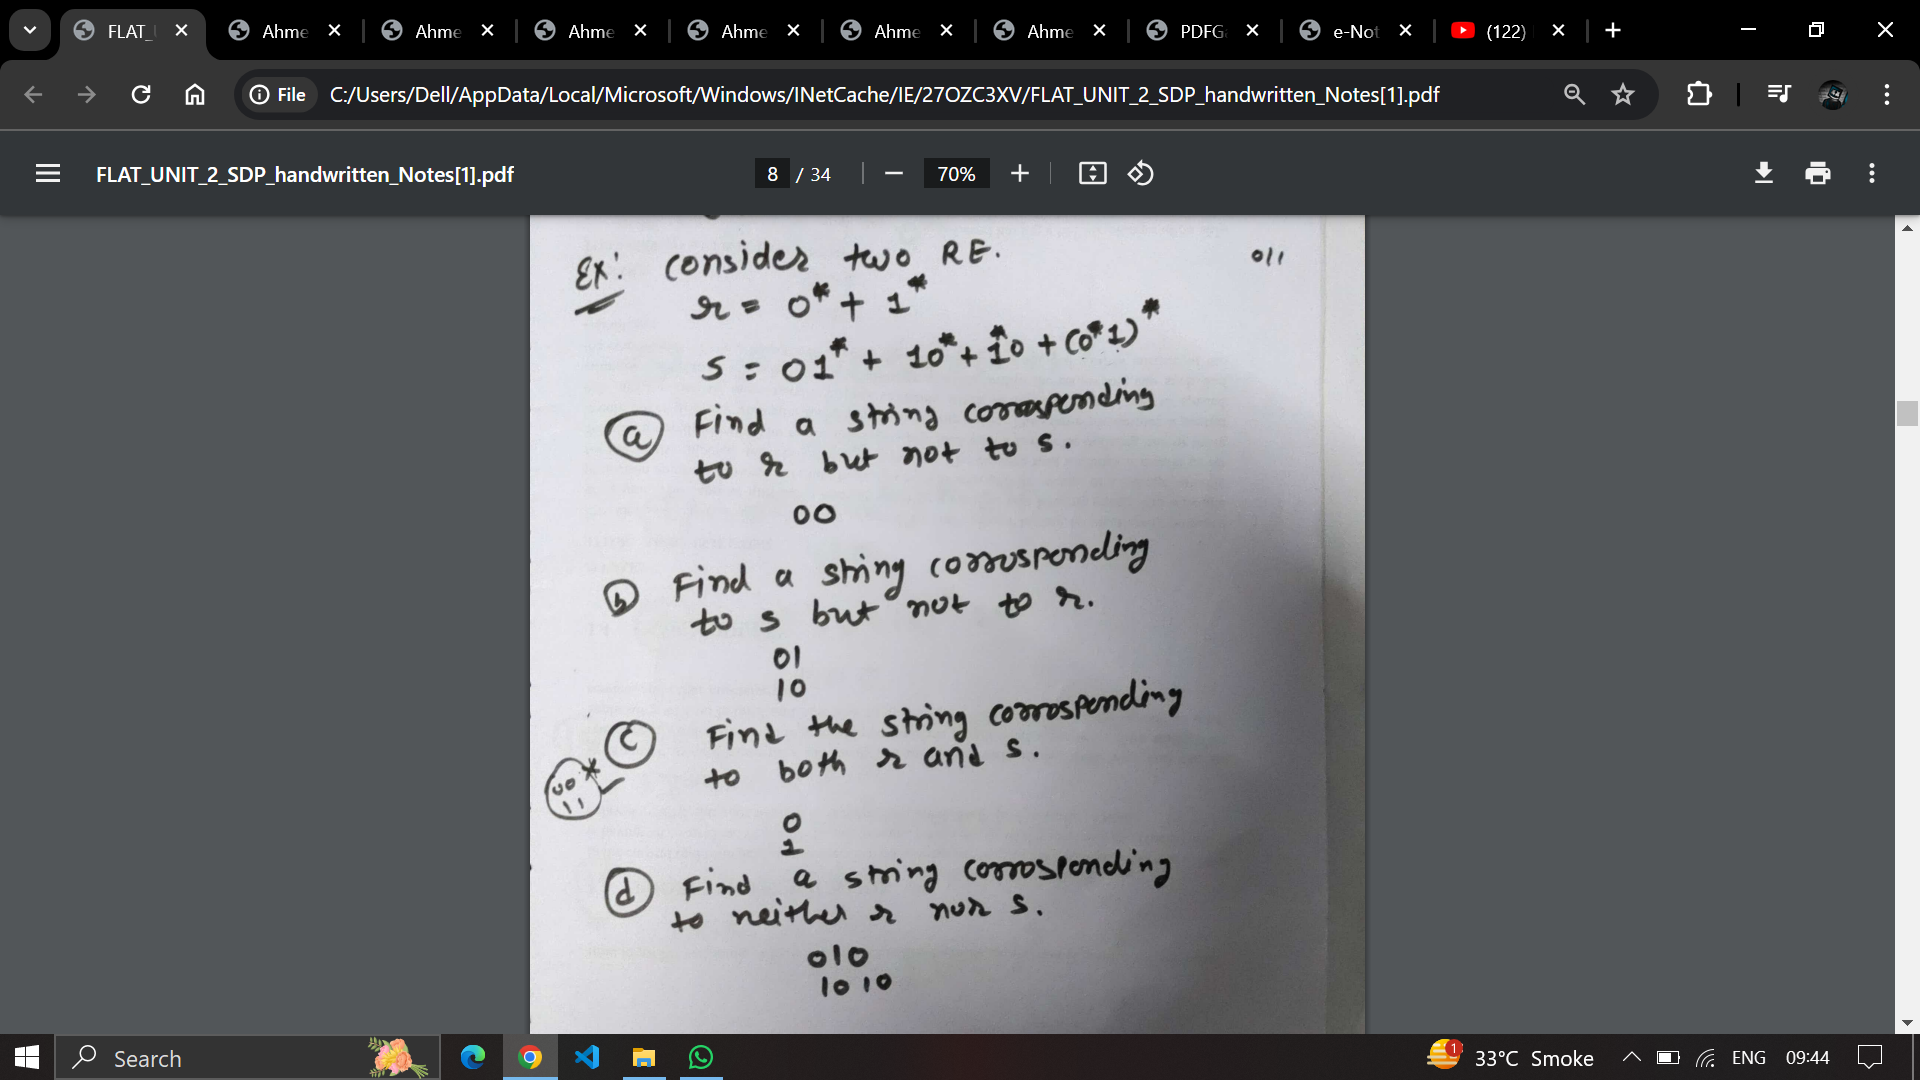 FLAT_
Ahme
Ahme
Ahme
Ahme
Ahme
Ahme
PDFG
e-Not
(122)
File
C:/Users/Dell/AppData/Local/Microsoft/Windows/INetCache/IE/27OZC3XV/FLAT_UNIT_2_SDP_handwritten_Notes[1].pdf
FLAT_UNIT_2_SDP_handwritten_Notes[1].pdf
8 / 34
70%
Ex: Consider two RE.
011
r = 0* + 1*
S = 01* + 10* + 1*0 + (0*1)*
a Find a string corrosponding
to r but not to s.
00
b Find a string corrosponding
to s but not to r.
01
10
c Find the string corrosponding
to both r and s.
0
1
d Find a string corrosponding
to neither r nor s.
010
1010
Search
1
33°C Smoke
ENG
09:44